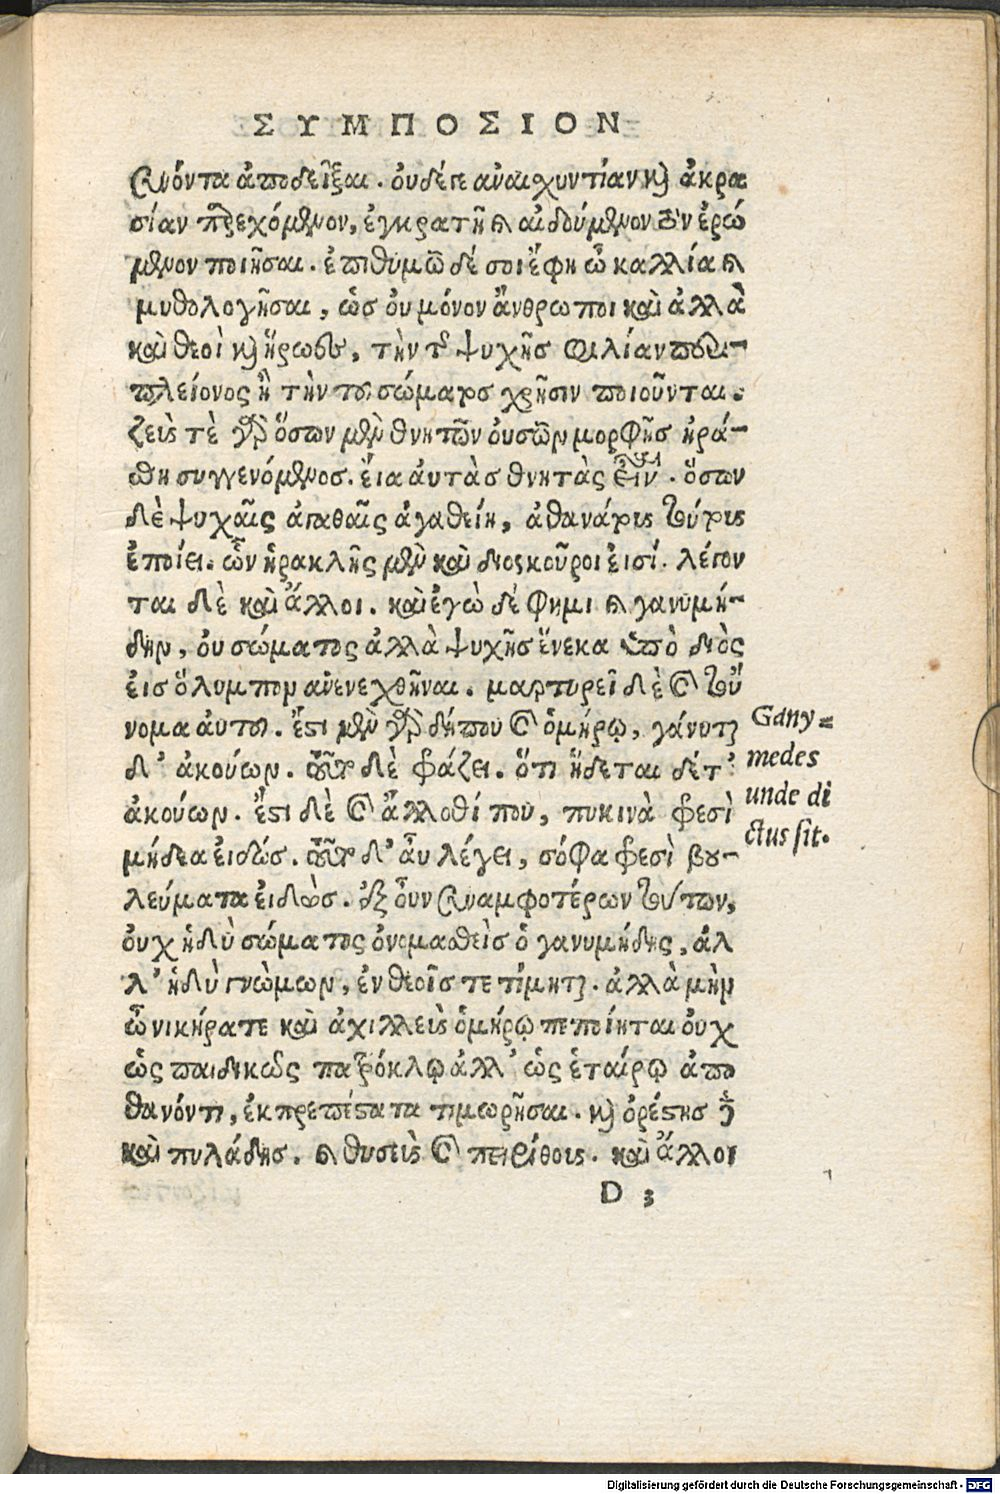 ΣΥΜΠΟΣΙΟΝ
συνόντα ἀποδεῖξαι. οὐδέγε ἀναισχυντίαν καὶ ἀκρα
σίαν παρεχόμενον, ἐγκρατῆ καὶ αἰδούμενον τὸν ἐρώ
μενον ποιῆσαι. ἐπιθυμῶ δέ σοι ἔφη ὦ καλλία καὶ
μυθολογῆσαι, ὡς οὐ μόνον ἄνθρωποι καὶ ἀλλὰ
καὶ θεοὶ καὶ ἥρωες, τὴν τῆς ψυχῆς φιλίαν περὶ
πλείονος ἢ τὴν τοῦ σώματος χρῆσιν ποιοῦνται.
ζεύς τὲ γὰρ ὅσων μὲν θνητῶν οὐσῶν μορφῆς ἠρά-
σθη συγγενόμενος. εἴα αὐτὰς θνητὰς εἶναι. ὅσων
δὲ ψυχαῖς ἀγαθαῖς ἀγαθείη, ἀθανάτους τούτους
ἐποίει. ὧν ἡρακλῆς μὲν καὶ διοςκοῦροι εἰσί. λέγον
ται δὲ καὶ ἄλλοι. καὶ ἐγὼ δέ φημι καὶ γανυμή-
δην, οὐ σώματος ἀλλὰ ψυχῆς ἕνεκα ὑπὸ διὸς
εἰς ὄλυμπον ἀνενεχθῆναι. μαρτυρεῖ δὲ καὶ τοὔ
νομα αὐτοῦ. ἔστι μὲν γὰρ δήπου καὶ ὁμήρῳ, γάνυται
δ' ἀκούων. τοῦτο δὲ φράζει. ὅτι ἥδεται δέ τ'
ἀκούων. ἔστι δὲ καὶ ἄλλοθί που, πυκινὰ φρεσὶ
μήδεα εἰδώς. τοῦτο δ' αὖ λέγει, σόφα φρεσὶ βου-
λεύματα εἰδὼς. ἐξ οὖν συναμφοτέρων τούτων,
οὐχ ἡδὺ σώματος ὀνομασθεὶς ὁ γανυμήδης, ἀλ
λ' ἡδὺ γνώμων, ἐν θεοῖς τετίμηται. ἀλλὰ μὴν
ὦ νικήρατε καὶ ἀχιλλεὺς ὁμήρῳ πεποίηται οὐχ
ὡς παιδικοῖς πατρόκλῳ ἀλλ' ὡς ἑταίρῳ ἀπο
θανόντι, ἐκπρεπέστατα τιμωρῆσαι. καὶ ὀρέστης δὲ
καὶ πυλάδης. καὶ θυσεὺς καὶ πειρίθους. καὶ ἄλλοι
Gany=
medes
unde di
ctus sit.
D 3
Digitalisierung gefördert durch die Deutsche Forschungsgemeinschaft - DFG